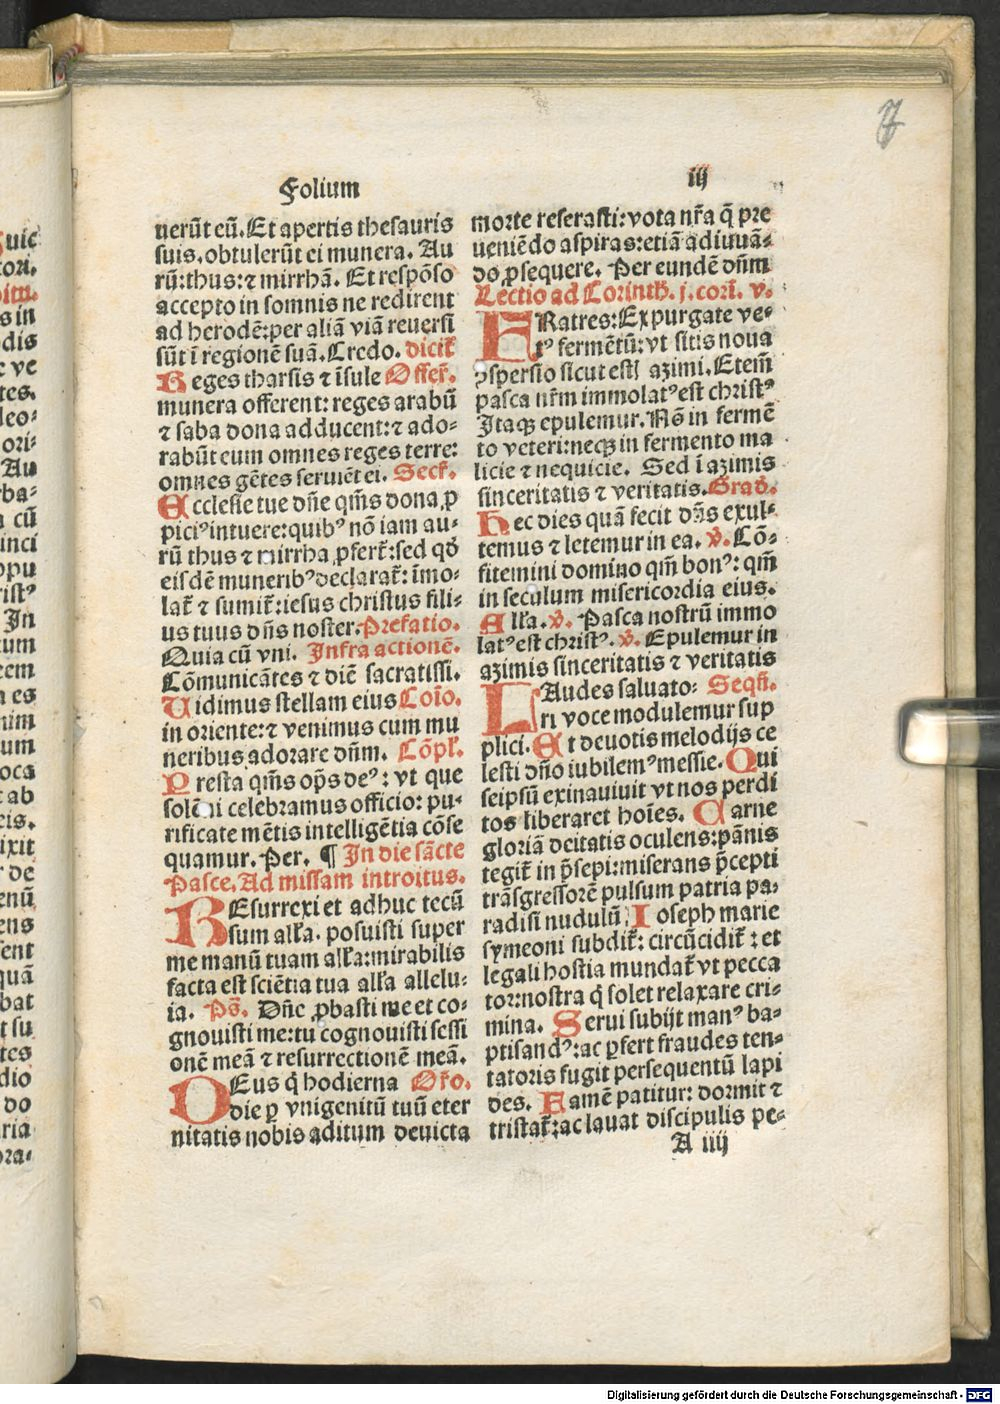 Folium
iij
uerūt eū. Et apertis thesauris
suis, obtulerūt ei munera. Au
rū: thus: ⁊ mirrhā. Et respōso
accepto in somnis ne redirent
ad herodē: per aliā viā reuersi
sūt ī regionē suā. Credo. dicit̄
Reges tharsis ⁊ īsule Offer̄.
munera offerent: reges arabū
⁊ saba dona adducent: ⁊ ado-
rabūt eum omnes reges terre:
omnes gētes seruiēt ei. Secr̄.
Ecclesie tue dn̄e qm̄s dona ꝓ
piciꝰ intuere: quibꝰ nō iam au-
rū thus ⁊ mirrha ꝓfert̄: sed qď
eisdē muneribꝰ declarat̄: īmo-
lat̄ ⁊ sumit̄: iesus christus fili-
us tuus dn̄s noster. Prefatio.
Quia cū vni. Infra actionē.
Cōmunicātes ⁊ diē sacratissi.
Uidimus stellam eius Coīo.
in oriente: ⁊ venimus cum mu
neribus adorare dn̄m. Cōpl̄.
Presta qm̄s op̄s deꝰ: vt que
solēni celebramus officio: pu-
rificate mētis intelligētia cōse
quamur. Per. ¶ In die sācte
Pasce. Ad missam introitus.
REsurrexi et adhuc tecū
sum alľa. posuisti super
me manū tuam alľa: mirabilis
facta est sciētia tua alľa allelu-
ia. Ps̄. Dn̄e ꝓbasti me et co-
gnouisti me: tu cognouisti sessi
onē meā ⁊ resurrectionē meā.
DEus q̄ hodierna Or̄o.
die ꝑ vnigenitū tuū eter
nitatis nobis aditum deuicta
morte reserasti: vota nr̄a q̄ pre
ueniēdo aspiras: etiā adiuuā-
do ꝓsequere. Per eundē dn̄m
Lectio ad Corinth. j. corī. v.
FRatres: Expurgate ve-
tꝰ fermētū: vt sitis noua
ꝯspersio sicut estis azimi. Etem̄
pasca nr̄m immolatꝰ est christꝰ
Itaqꝫ epulemur. Nō in fermē
to veteri: neqꝫ in fermento ma
licie ⁊ nequicie. Sed ī azimis
sinceritatis ⁊ veritatis. Grad̄.
Hec dies quā fecit dn̄s exul-
temus ⁊ letemur in ea. v̄. Cō-
fitemini domino qm̄ bonꝰ: qm̄
in seculum misericordia eius.
Alľa. v̄. Pasca nostrū immo
latꝰ est christꝰ. v̄. Epulemur in
azimis sinceritatis ⁊ veritatis
LAudes saluato: Seqn̄.
ri voce modulemur sup
plici. Et deuotis melodijs ce
lesti dn̄o iubilemꝰ messie. Qui
seipsū exinaniuit vt nos perdi
tos liberaret hoīes. Carne
gloriā deitatis oculens: pānis
tegit̄ in p̄sepi: miserans p̄cepti
trāsgressorē pulsum patria pa-
radisi nudulū. Ioseph marie
symeoni subdit̄: circūcidit̄: et
legali hostia mundat̄ vt pecca
tor: nostra q̄ solet relaxare cri-
mina. Serui subijt manꝰ ba-
ptisandꝰ: ac ꝑfert fraudes ten-
tatoris fugit persequentū lapi
des. Famē patitur: dormit ⁊
tristat̄: ac lauat discipulis pe-
A iiij
Digitalisierung gefördert durch die Deutsche Forschungsgemeinschaft - DFG